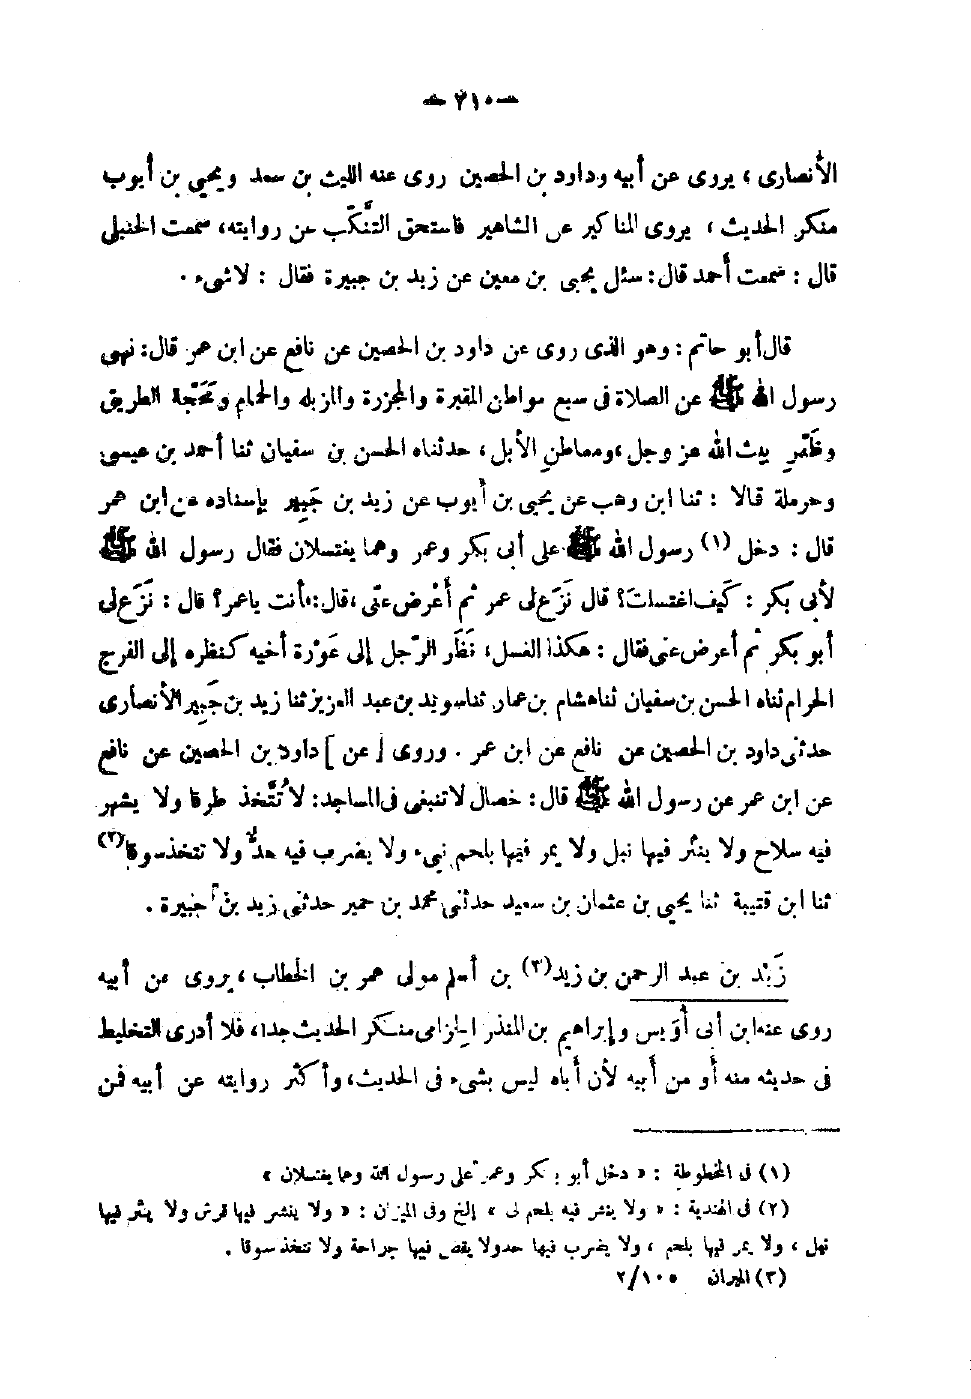 — ٣١٠ —
الأنصارى، يروى عن أبيه وداود بن الحصين روى عنه الليث بن سعد ويحيى بن أيوب
منكر الحديث، يروى المناكير عن المشاهير فاستحق التنكّب عن روايته، سمعت الحنبلى
قال: سمعت أحمد قال: سئل يحيى بن معين عن زيد بن جبيرة فقال: لاشىء.
قال أبو حاتم: وهو الذى روى عن داود بن الحصين عن نافع عن ابن عمر قال: نهى
رسول الله ﷺ عن الصلاة فى سبع مواطن المقبرة والمجزرة والمزبلة والحمام ومَحَجّة الطريق
وظَهْرِ بيت الله عز وجل، ومعاطن الأبل، حدثناه الحسن بن سفيان ثنا أحمد بن عيسى
وحرملة قالا: ثنا ابن وهب عن يحيى بن أيوب عن زيد بن جَبِير بإسناده عن ابن عمر
قال: دخل (١) رسول الله ﷺ على أبى بكر وعمر وهما يغتسلان فقال رسول الله ﷺ
لأبى بكر: كَيف اغتسلتَ؟ قال نَزَع لى عمر ثم أَعْرض عنّى، قال: فأنت ياعمر؟ قال: نَزَع لى
أبو بكر ثم أعرض عنى فقال: هكذا الغسل، نَظَر الرّجل إلى عَوْرة أخيه كنظره إلى الفرج
الحرام ثناه الحسن بن سفيان ثنا هشام بن عمار ثنا سويد بن عبد العزيز ثنا زيد بن جَبِير الأنصارى
حدثنى داود بن الحصين عن نافع عن ابن عمر. وروى [ عن ] داود بن الحصين عن نافع
عن ابن عمر عن رسول الله ﷺ قال: خصال لا تنبغى فى المساجد: لا تُتّخذ طرقا ولا يشهر
فيه سلاح ولا ينثر فيها نبل ولا يمر فيها بلحم نىء ولا يضرب فيه حدٌّ ولا تتخذ سوقا (٢)
ثنا ابن قتيبة ثنا يحيى بن عثمان بن سعيد حدثنى محمد بن حمير حدثنى زيد بن جبيرة.
زَيْد بن عبد الرحمن بن زيد (٣) بن أسلم مولى عمر بن الخطاب، يروى عن أبيه
روى عنه ابن أبى أُوَيس وإبراهيم بن المنذر الحِزامى منكر الحديث جدا، فلا أدرى التخليط
فى حديثه منه أو من أبيه لأن أباه ليس بشىء فى الحديث، وأكثر روايته عن أبيه فمن
(١) فى المخطوطة: « دخل أبو بكر وعمر على رسول الله وهما يغتسلان »
(٢) فى الهندية: « ولا ينشر فيه بلحم لى » إلخ وفى الميزان: « ولا ينشر فيها قوس ولا ينثر فيها
نبل، ولا يمر فيها بلحم، ولا يضرب فيها حدولا يقص فيها جراحة ولا تتخذ سوقا.
(٣) الميزان ٢/١٠٥